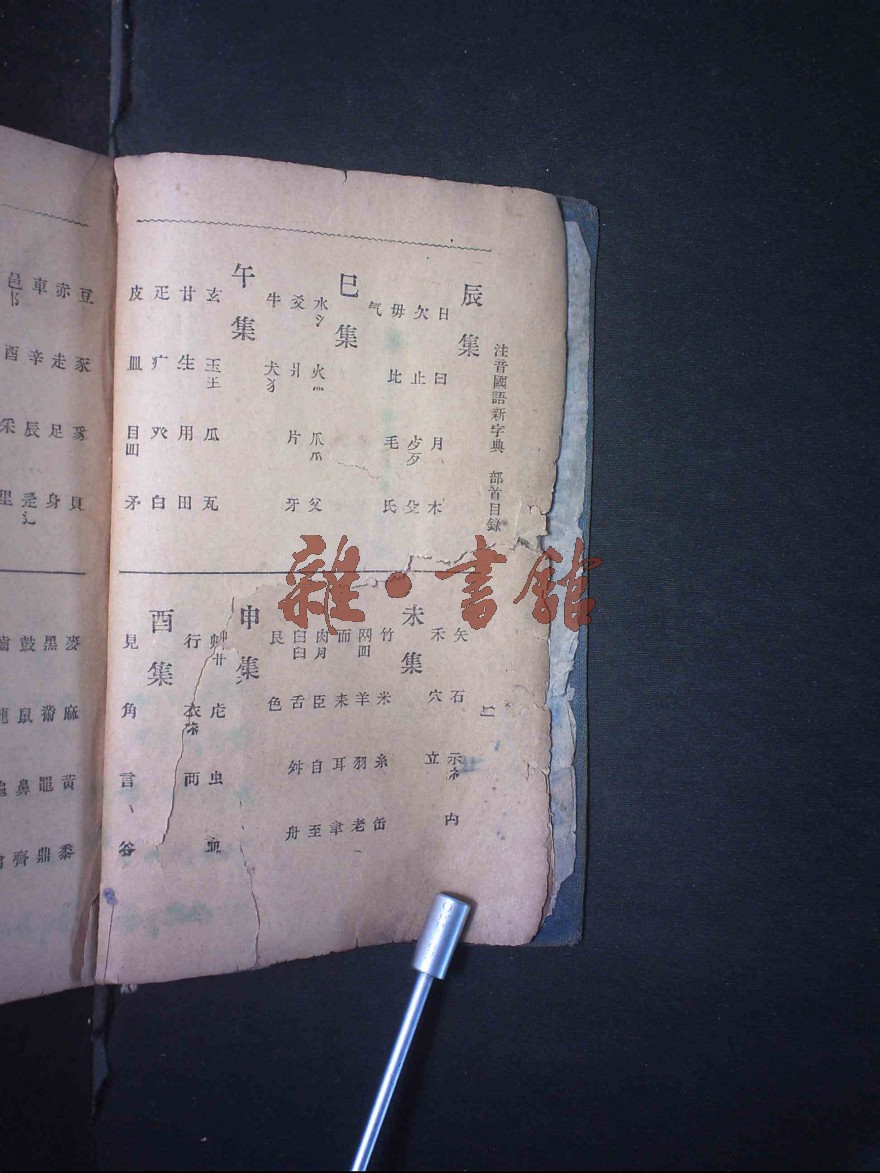 注音國語新字典 部首目錄
二
辰集
日 曰 月 木
欠 止 歹歺 殳
毋 比 毛 氏
气
巳集
水氵 火灬 爪爫 父
爻 爿 片 牙
牛 犬犭
午集
玄 玉王 瓜 瓦
甘 生 用 田
疋 疒 癶 白
皮 皿 目罒 矛
矢 石 示礻 禸
禾 穴 立
未集
竹 米 糸 缶
网罒 羊 羽 老
而 耒 耳 聿
肉月 臣 自 至
臼 舌 舛 舟
艮 色
申集
艸艹 虍 虫 血
行 衣衤 襾
酉集
見 角 言 谷
豆 豕 豸 貝
赤 走 足 身
車 辛 辰 辵辶
邑阝 酉 釆 里
麥 麻 黃 黍
黑 黹 黽 鼎
鼓 鼠 鼻 齊
齒 龍 龜
雜·書館